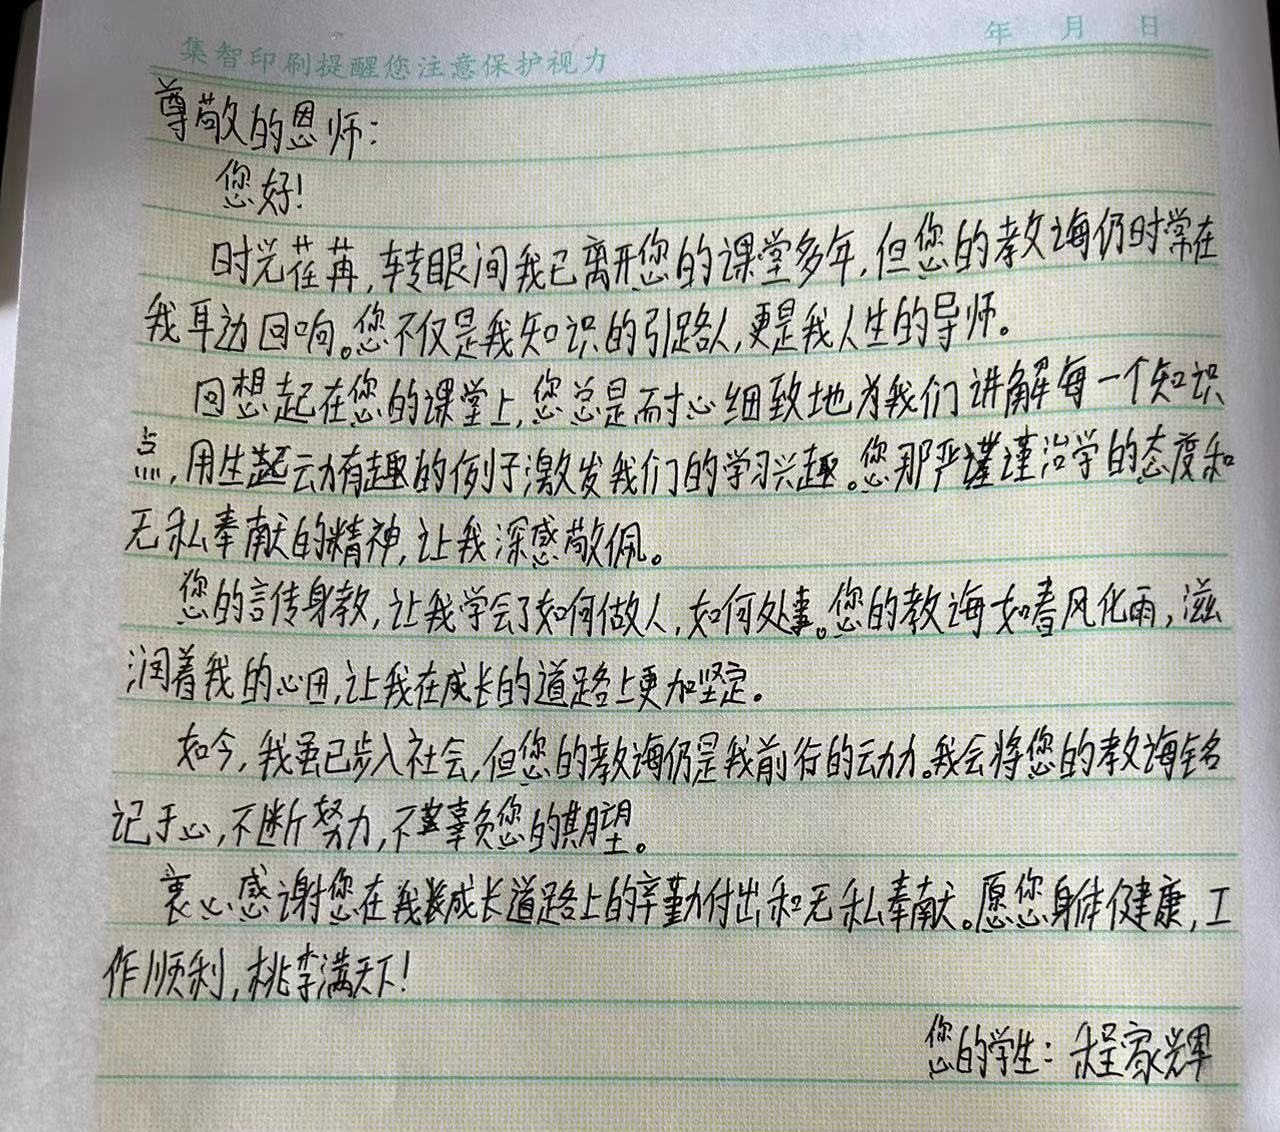 年 月 日
集智印刷提醒您注意保护视力
尊敬的恩师：
您好！
时光荏苒，转眼间我已离开您的课堂多年，但您的教诲仍时常在
我耳边回响。您不仅是我知识的引路人，更是我人生的导师。
回想起在您的课堂上，您总是耐心细致地为我们讲解每一个知识
点，用生动有趣的例子激发我们的学习兴趣。您那严谨治学的态度和
无私奉献的精神，让我深感敬佩。
您的言传身教，让我学会了如何做人，如何处事。您的教诲如春风化雨，滋
润着我的心田，让我在成长的道路上更加坚定。
如今，我虽已步入社会，但您的教诲仍是我前行的动力。我会将您的教诲铭
记于心，不断努力，不辜负您的期望。
衷心感谢您在我成长道路上的辛勤付出和无私奉献。愿您身体健康，工
作顺利，桃李满天下！
您的学生：程家辉